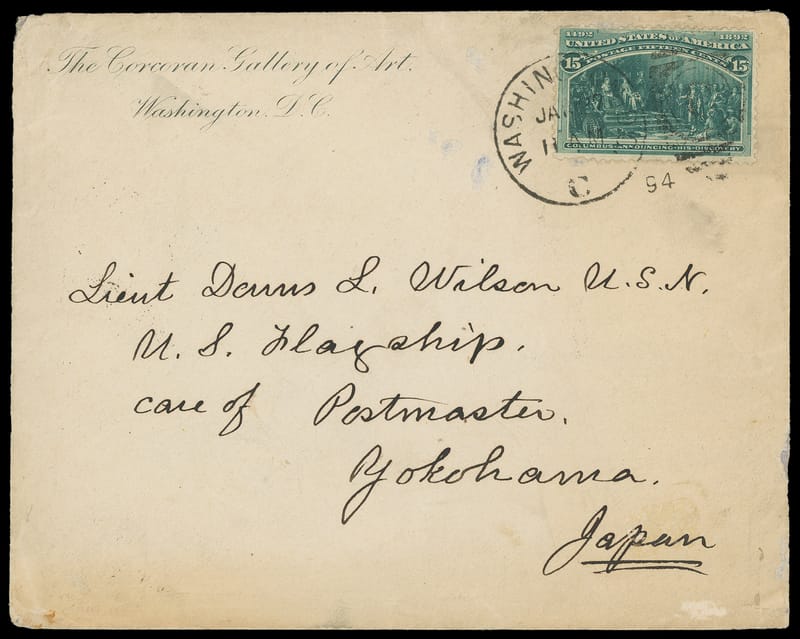 The Corcoran Gallery of Art.
Washington, D.C.
1492 1892
UNITED STATES OF AMERICA
POSTAGE FIFTEEN CENTS
15 15
COLUMBUS ANNOUNCING HIS DISCOVERY
WASHIN
JA
11 AM
94
C
Lieut Downs L. Wilson U.S.N.
U. S. Flagship.
care of Postmaster.
Yokohama.
Japan